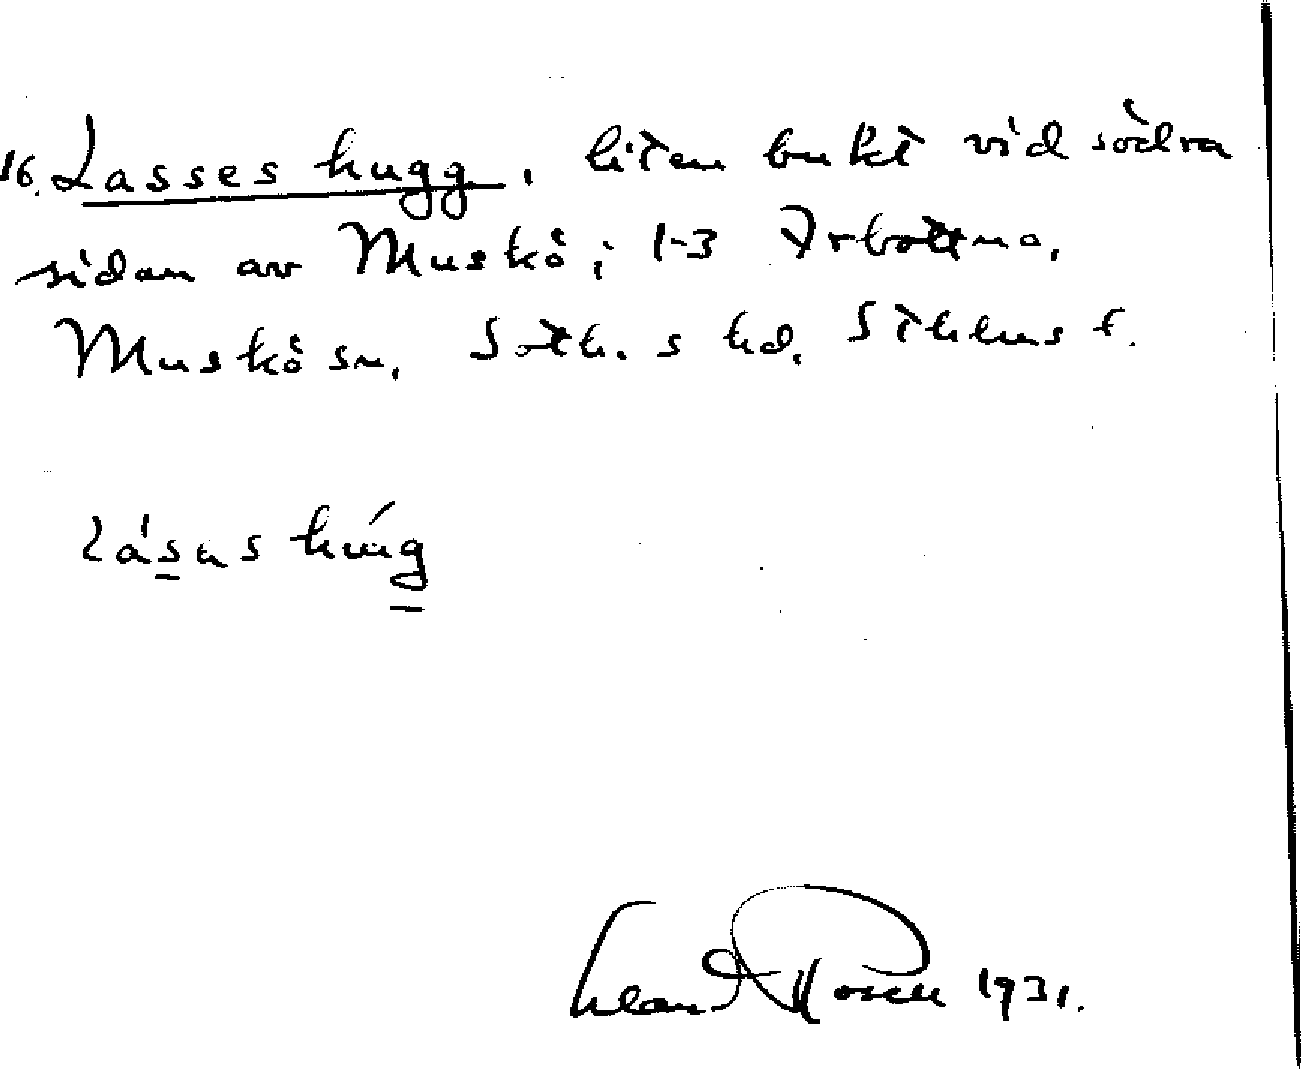 16. Lasses hugg, liten bukt vid södra
sidan av Muskö; 1-3 Arbottna,
Muskö sn, Soth. s hd, Sthlms l.
lásas húg
1931.